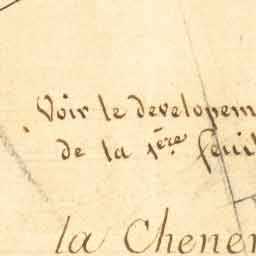 Voir le developem
de la 1ère feuil
la Chener